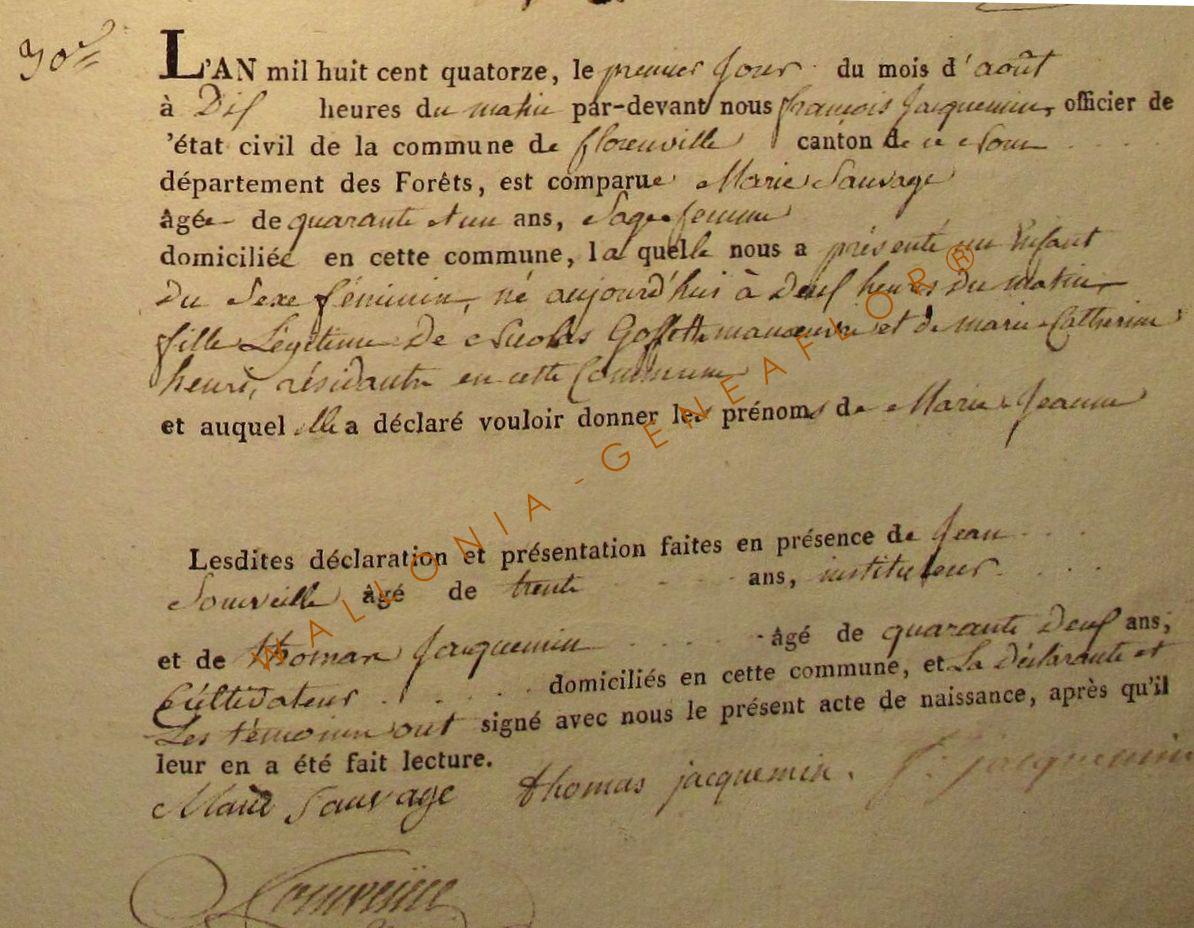 30e
L'AN mil huit cent quatorze, le premier Jour du mois d'août
à Dix heures du matin par-devant nous françois Jacquemin, officier de
'état civil de la commune de florenville canton de ce Nom
département des Forêts, est comparue Marie Sauvage
âgée de quarante et un ans, Sage femme
domiciliée en cette commune, la quelle nous a présenté un Enfant
Du Sexe féminin, né aujourd'hui à Deux heures Du matin,
fille Légitime De Nicolas Goffette manœuvre et de marie Catherine
henri, résidante en cette Commune
et auquel elle a déclaré vouloir donner les prénoms de Marie Jeanne
Lesdites déclaration et présentation faites en présence de Jean
Sourveille âgé de trente ans, instituteur
et de thomas Jacquemin âgé de quarante Deux ans,
Cultivateur domiciliés en cette commune, et La Déclarante et
Les témoins ont signé avec nous le présent acte de naissance, après qu'il
leur en a été fait lecture.
Marie Sauvage thomas jacquemin. f. jacquemin
WALLONIA-GENEAFLOR®